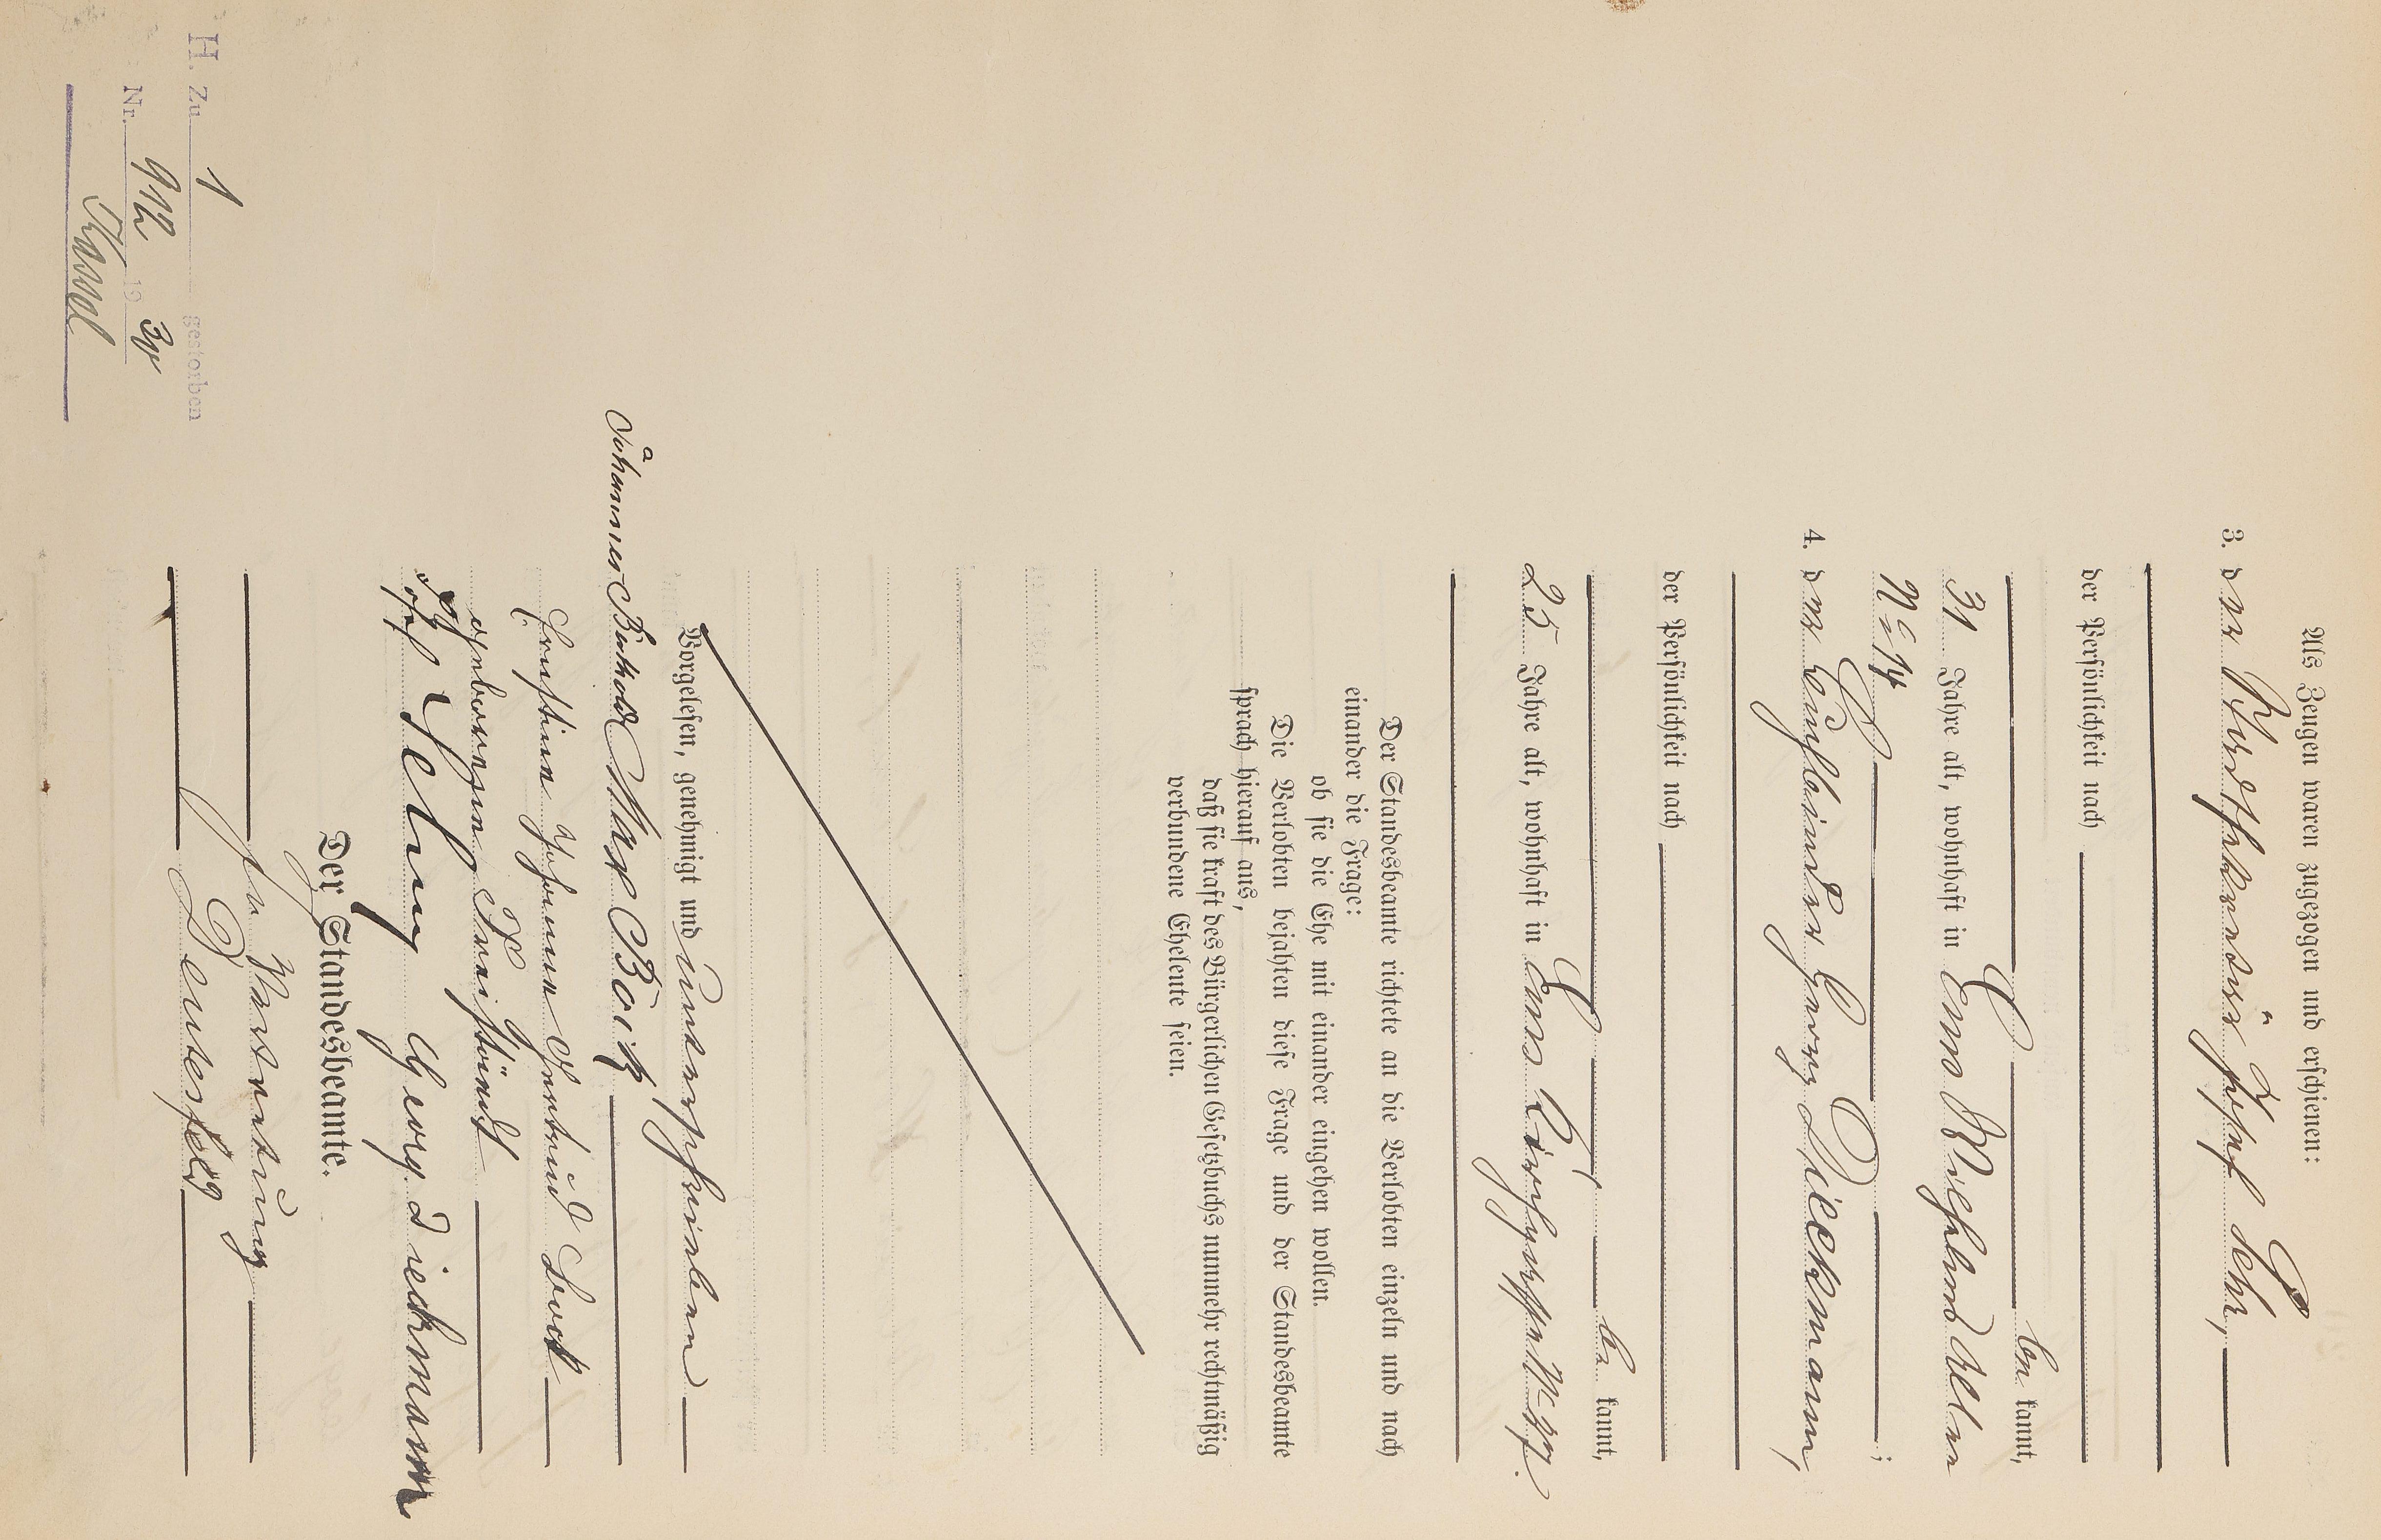 Als Zeugen waren zugezogen und erschienen:
3. der Josef Sehr,
der Persönlichkeit nach
be kannt,
31 Jahre alt, wohnhaft in Ems
No 14 ;
4. der Georg Dieckmann,
der Persönlichkeit nach
be kannt,
25 Jahre alt, wohnhaft in Ems
Der Standesbeamte richtete an die Verlobten einzeln und nach
einander die Frage:
ob sie die Ehe mit einander eingehen wollen.
Die Verlobten bejahten diese Frage und der Standesbeamte
sprach hierauf aus,
daß sie kraft des Bürgerlichen Gesetzbuchs nunmehr rechtmäßig
verbundene Eheleute seien.
Vorgelesen, genehmigt und unterschrieben
Johannes Max
Johanna Gertrud
geborene
Josef Sehr Georg Dieckmann
Der Standesbeamte.
In Vertretung
H. Zu 1 gestorben
Nr. 912 19
Kassel